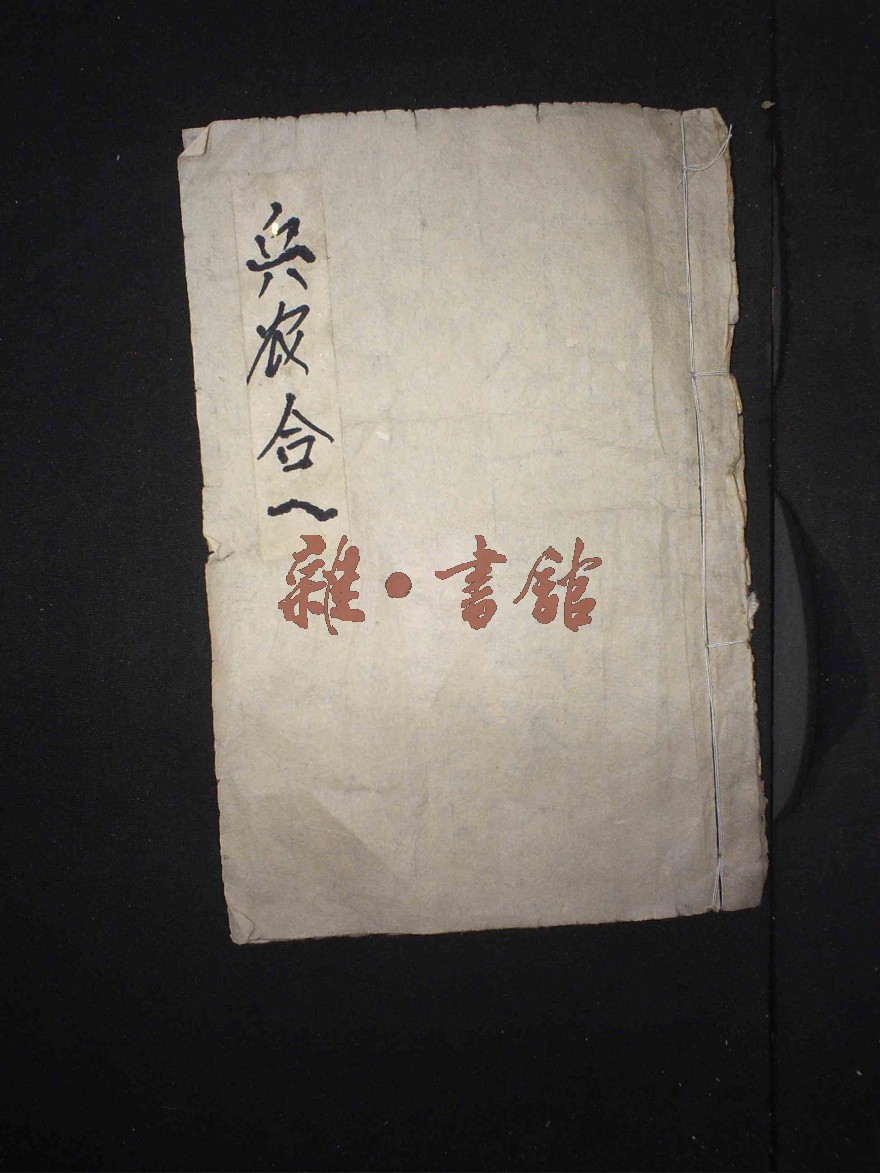 兵农合一
雜·書館